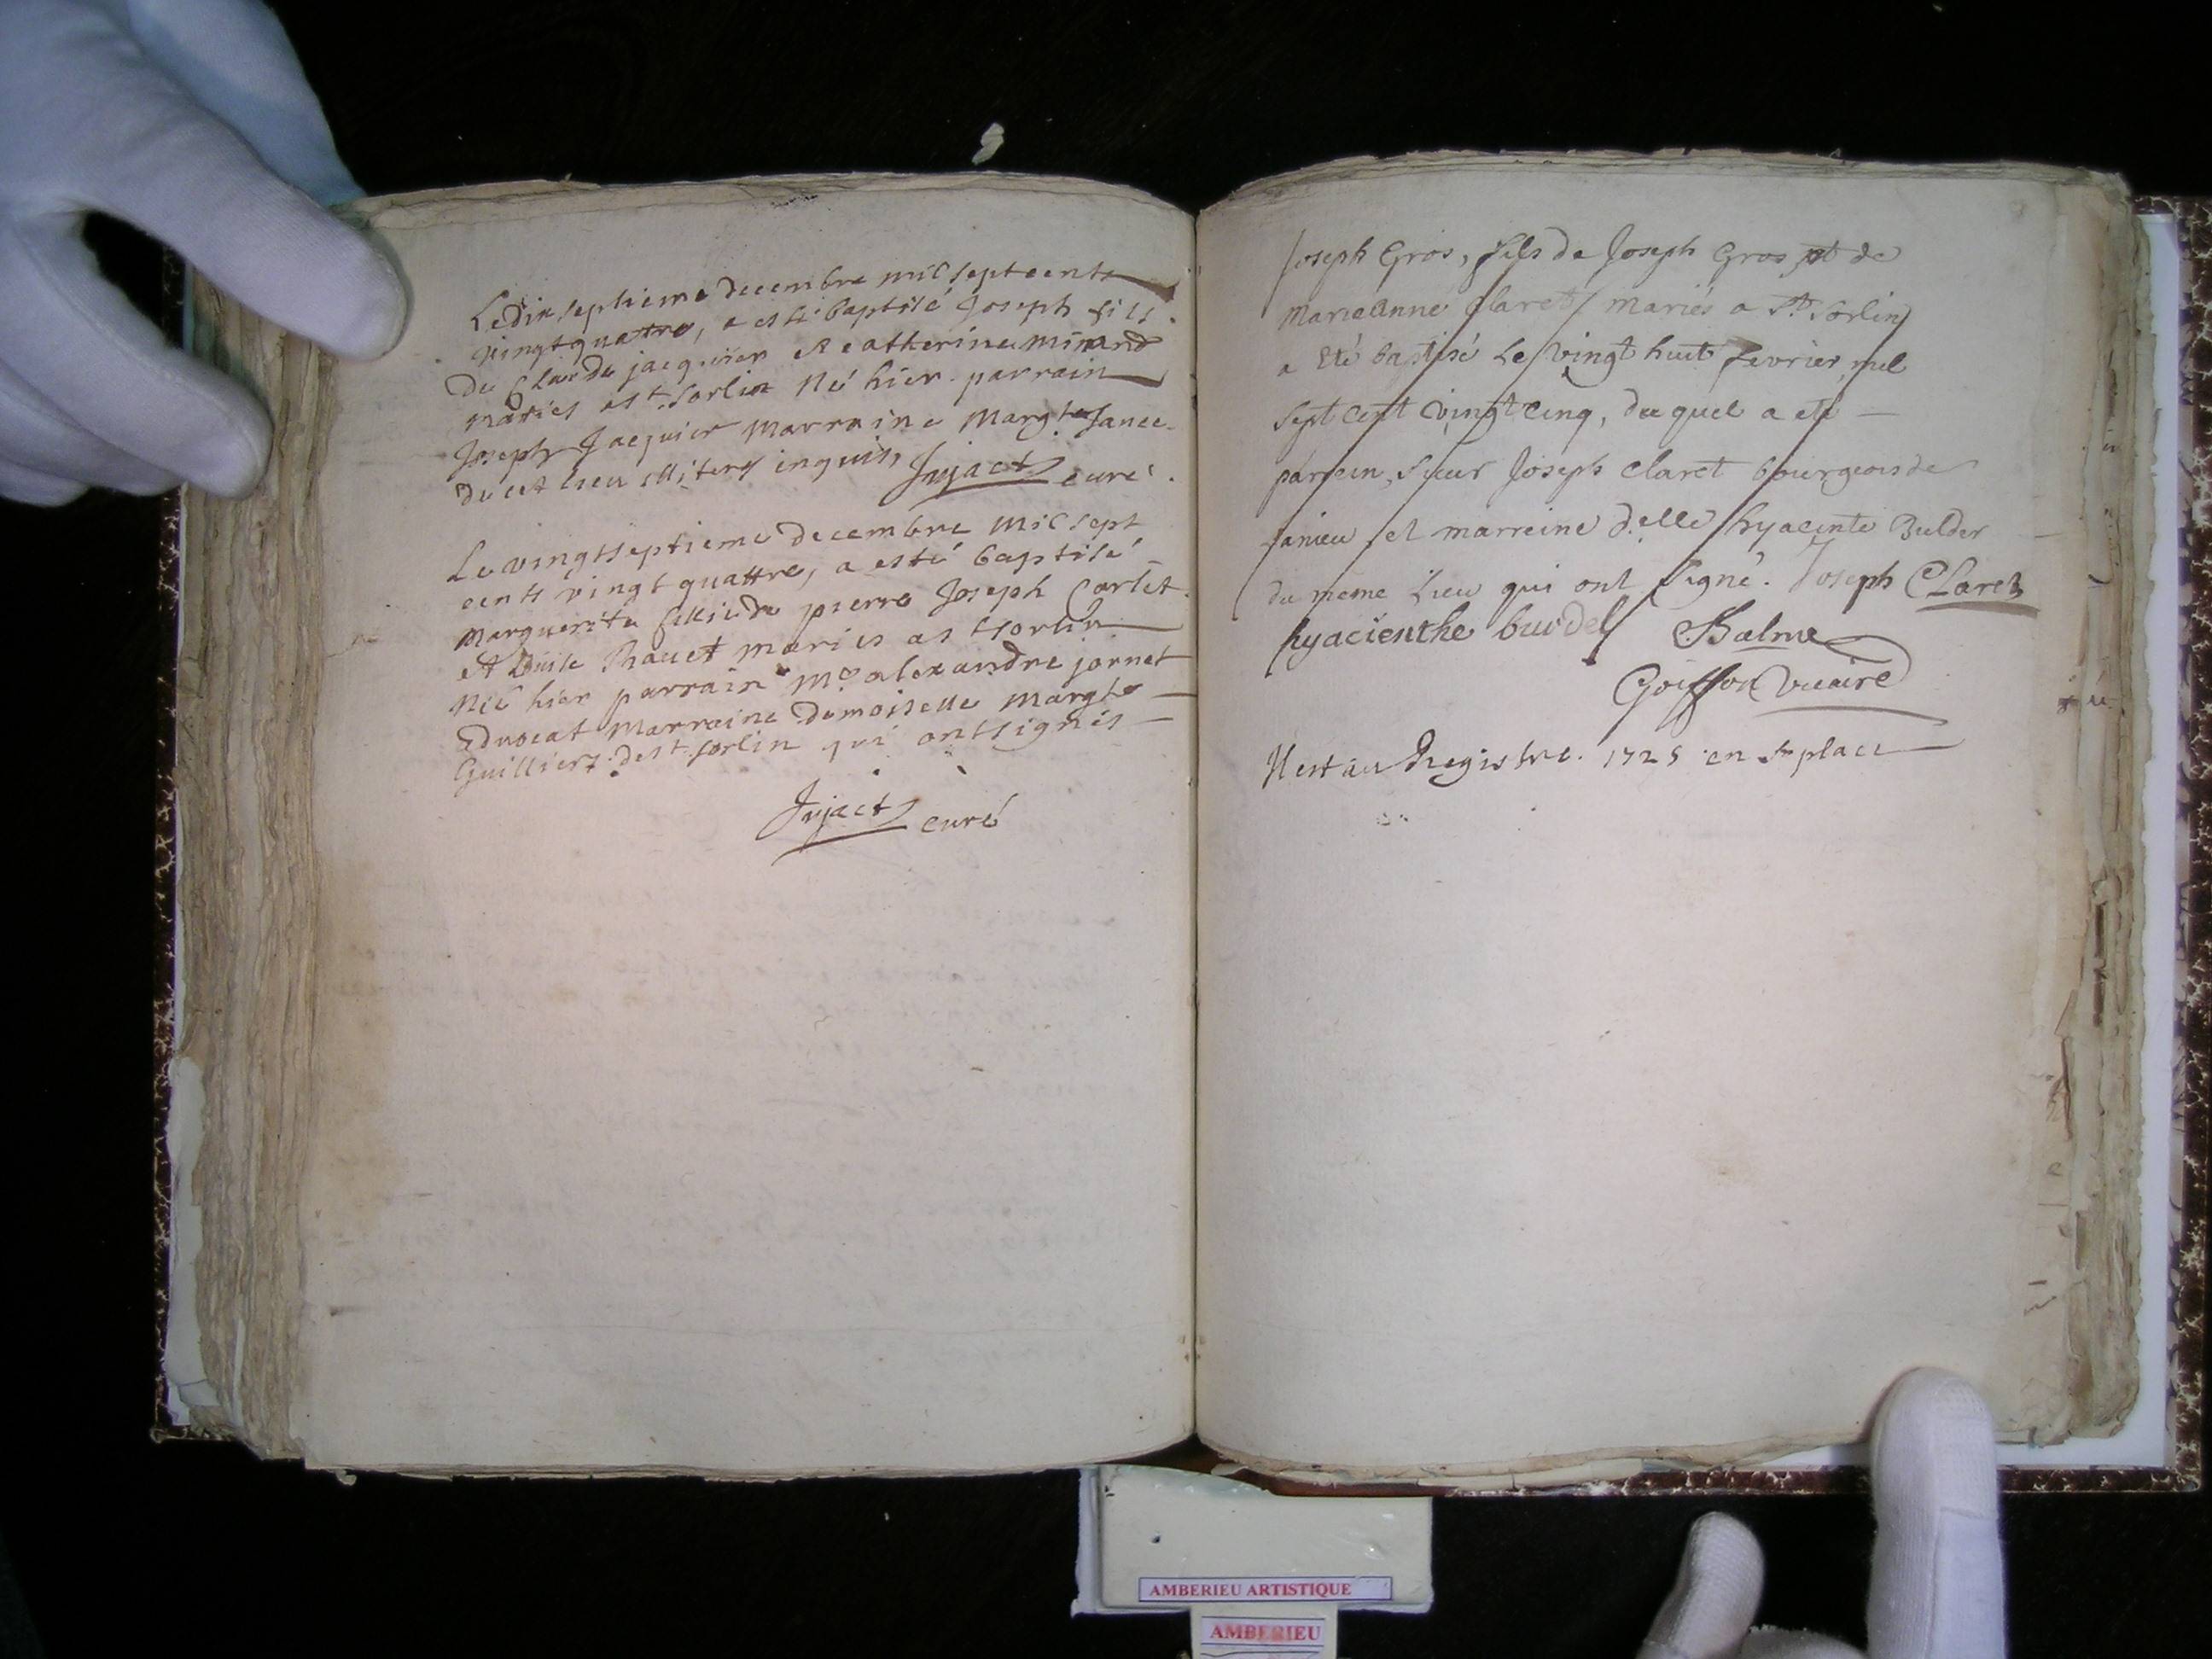 Le dix septieme decembre mil sept cents
vingt quattre, a esté baptisé Joseph fils
de Claude jacquier et catherine minand
mariés a st Sorlin né hier. parrain
Joseph Jacquier marraine Margte Janee
du dit lieu illiterés inquis, Jujact curé.
Le vingt septieme decembre mil sept
cents vingt quattre, a esté baptisé
marguerite fillie de pierre Joseph Carlet
et Louise mariés a st Sorlin
née hier parrain Me alexandre jornet
advocat marraine demoiselle Margte
Guilliert de st Sorlin qui ont signés
Jujact curé
Joseph Gros, fils de Joseph Gros et de
Marieanne Claret mariés a St Sorlin
a eté baptisé le vingt huit fevrier mil
sept cent vingt cinq, du quel a eté
parrein, sieur Joseph Claret bourgeois de
Lanieu et marreine delle hyacinte Bulder
du meme lieu qui ont signé. Joseph Claret
hyacienthe burdel Balme
Goiffon vicaire
Il est au Registre. 1725 en sa place
AMBERIEU ARTISTIQUE
AMBERIEU